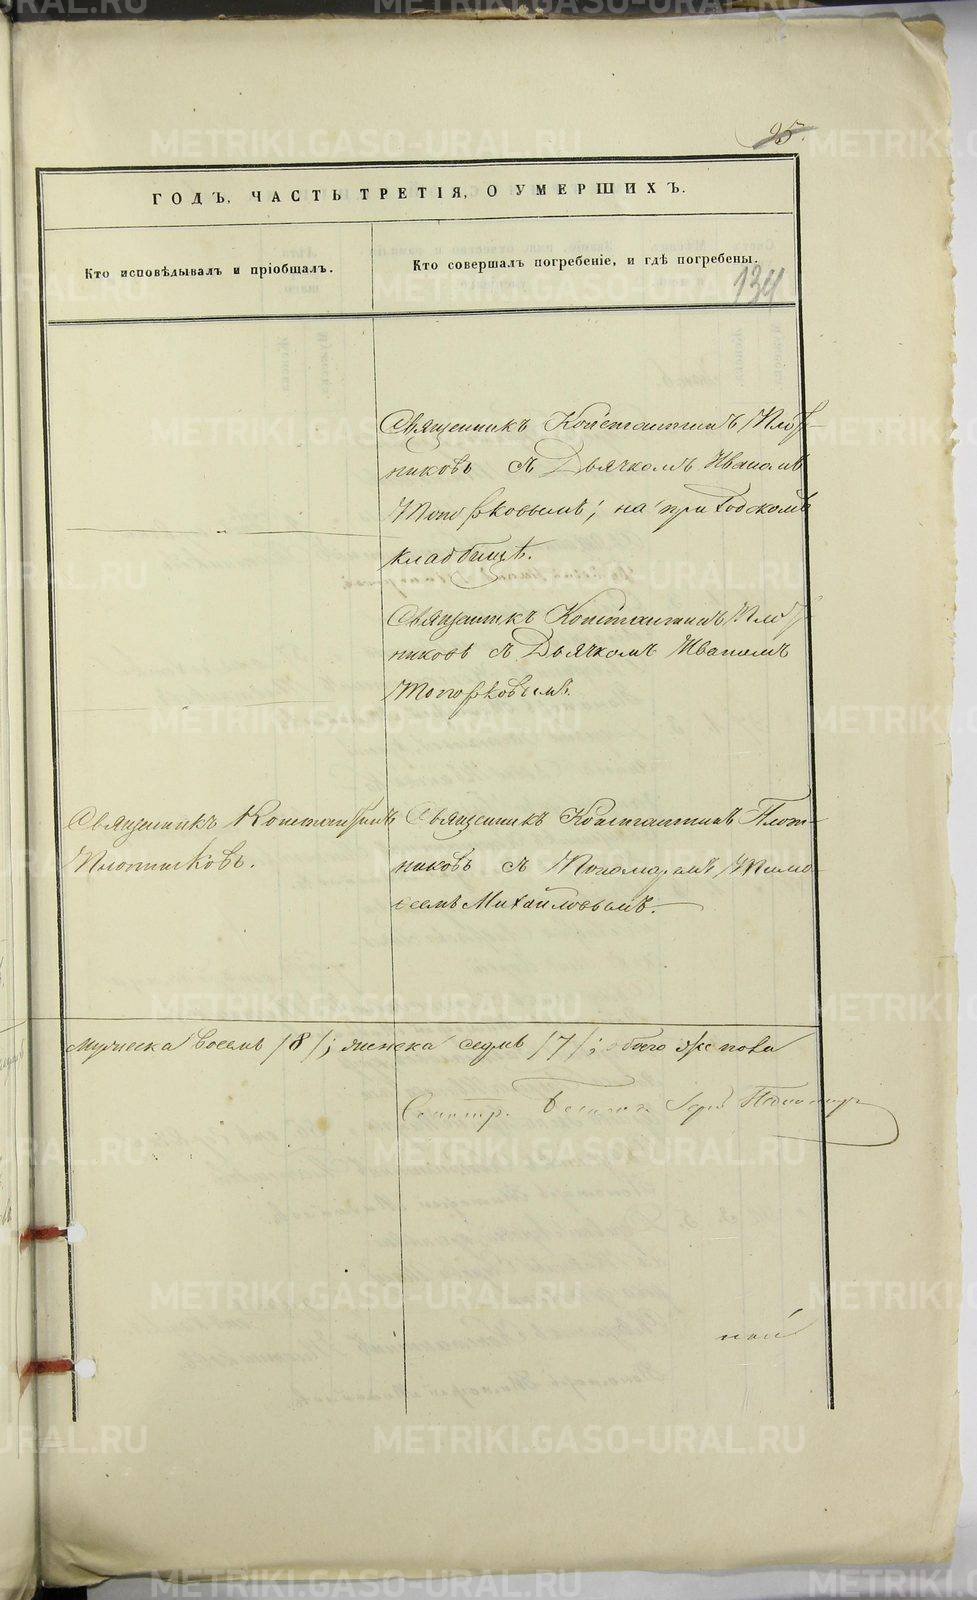 95.
ГОДЪ, ЧАСТЬ ТРЕТІЯ, О УМЕРШИХЪ.
Кто исповѣдывалъ и пріобщалъ.
Кто совершалъ погребеніе, и гдѣ погребены.
134
Священникъ Константинъ Плот-
никовъ съ Дьячкомъ Иваномъ
Топорковымъ; на приходскомъ
кладбищѣ.
Священникъ Константинъ Плот-
никовъ съ Дьячкомъ Иваномъ
Топорковымъ.
Священникъ Константинъ
Плотниковъ.
Священникъ Константинъ Плот-
никовъ съ Пономаремъ Тимо-
ѳеемъ Михайловымъ.
Мужеска восемь /8/; женска семь /7/; обоего же пола
METRIKI.GASO-URAL.RU